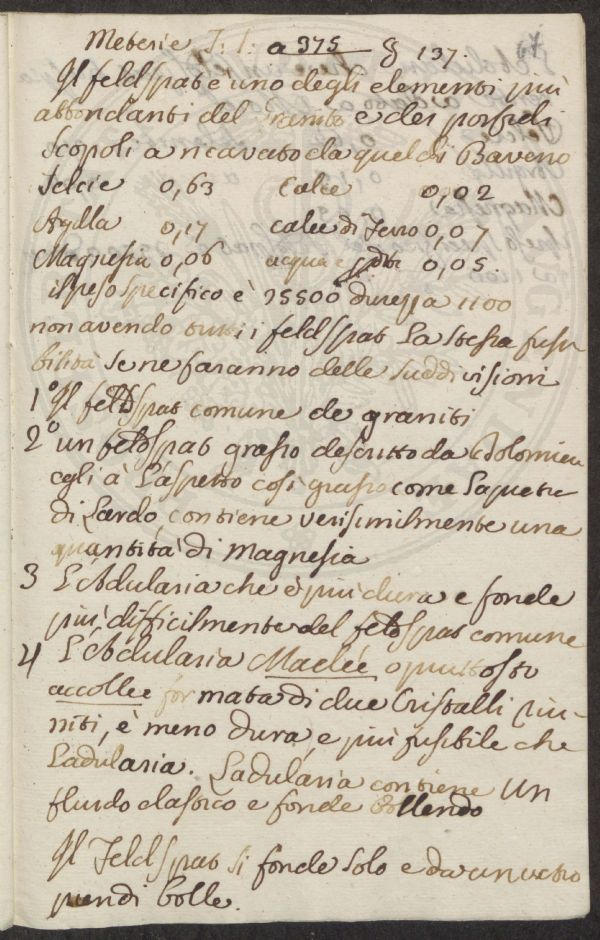 Meterie T: I: a 375 § 137.
Il feldspat e uno degli elementi più
abbondanti del Granito e dei porfidi
Scopoli a ricavato da quel di Baveno
Selcie 0,63 Calce 0,02
Argilla 0,17 calce di Ferro 0,07
Magnesia 0,06 acqua e 0,05.
il peso specifico è 25500 durezza 1100
non avendo tutti i feldspat La stessa fusi
bilità se ne faranno delle suddivisioni
1° Il feldspat comune de graniti
2° un feldspat grasso descritto da Dolomieu
egli à L'aspetto così grasso come la pietre
di Lardo, contiene verisimilmente una
quantità di Magnesia
3 L'Adularia che è più dura e fonde
più difficilmente del feldspat comune
4 L'Adularia Maclée o piuttosto
accollee formata di due Cristalli riu-
niti, è meno dura, e più fusibile che
L'adularia. L'adularia contiene un
fluido elastico e fonde bollendo
Il Feldspat si fonde solo e da un vetro
pien di bolle.